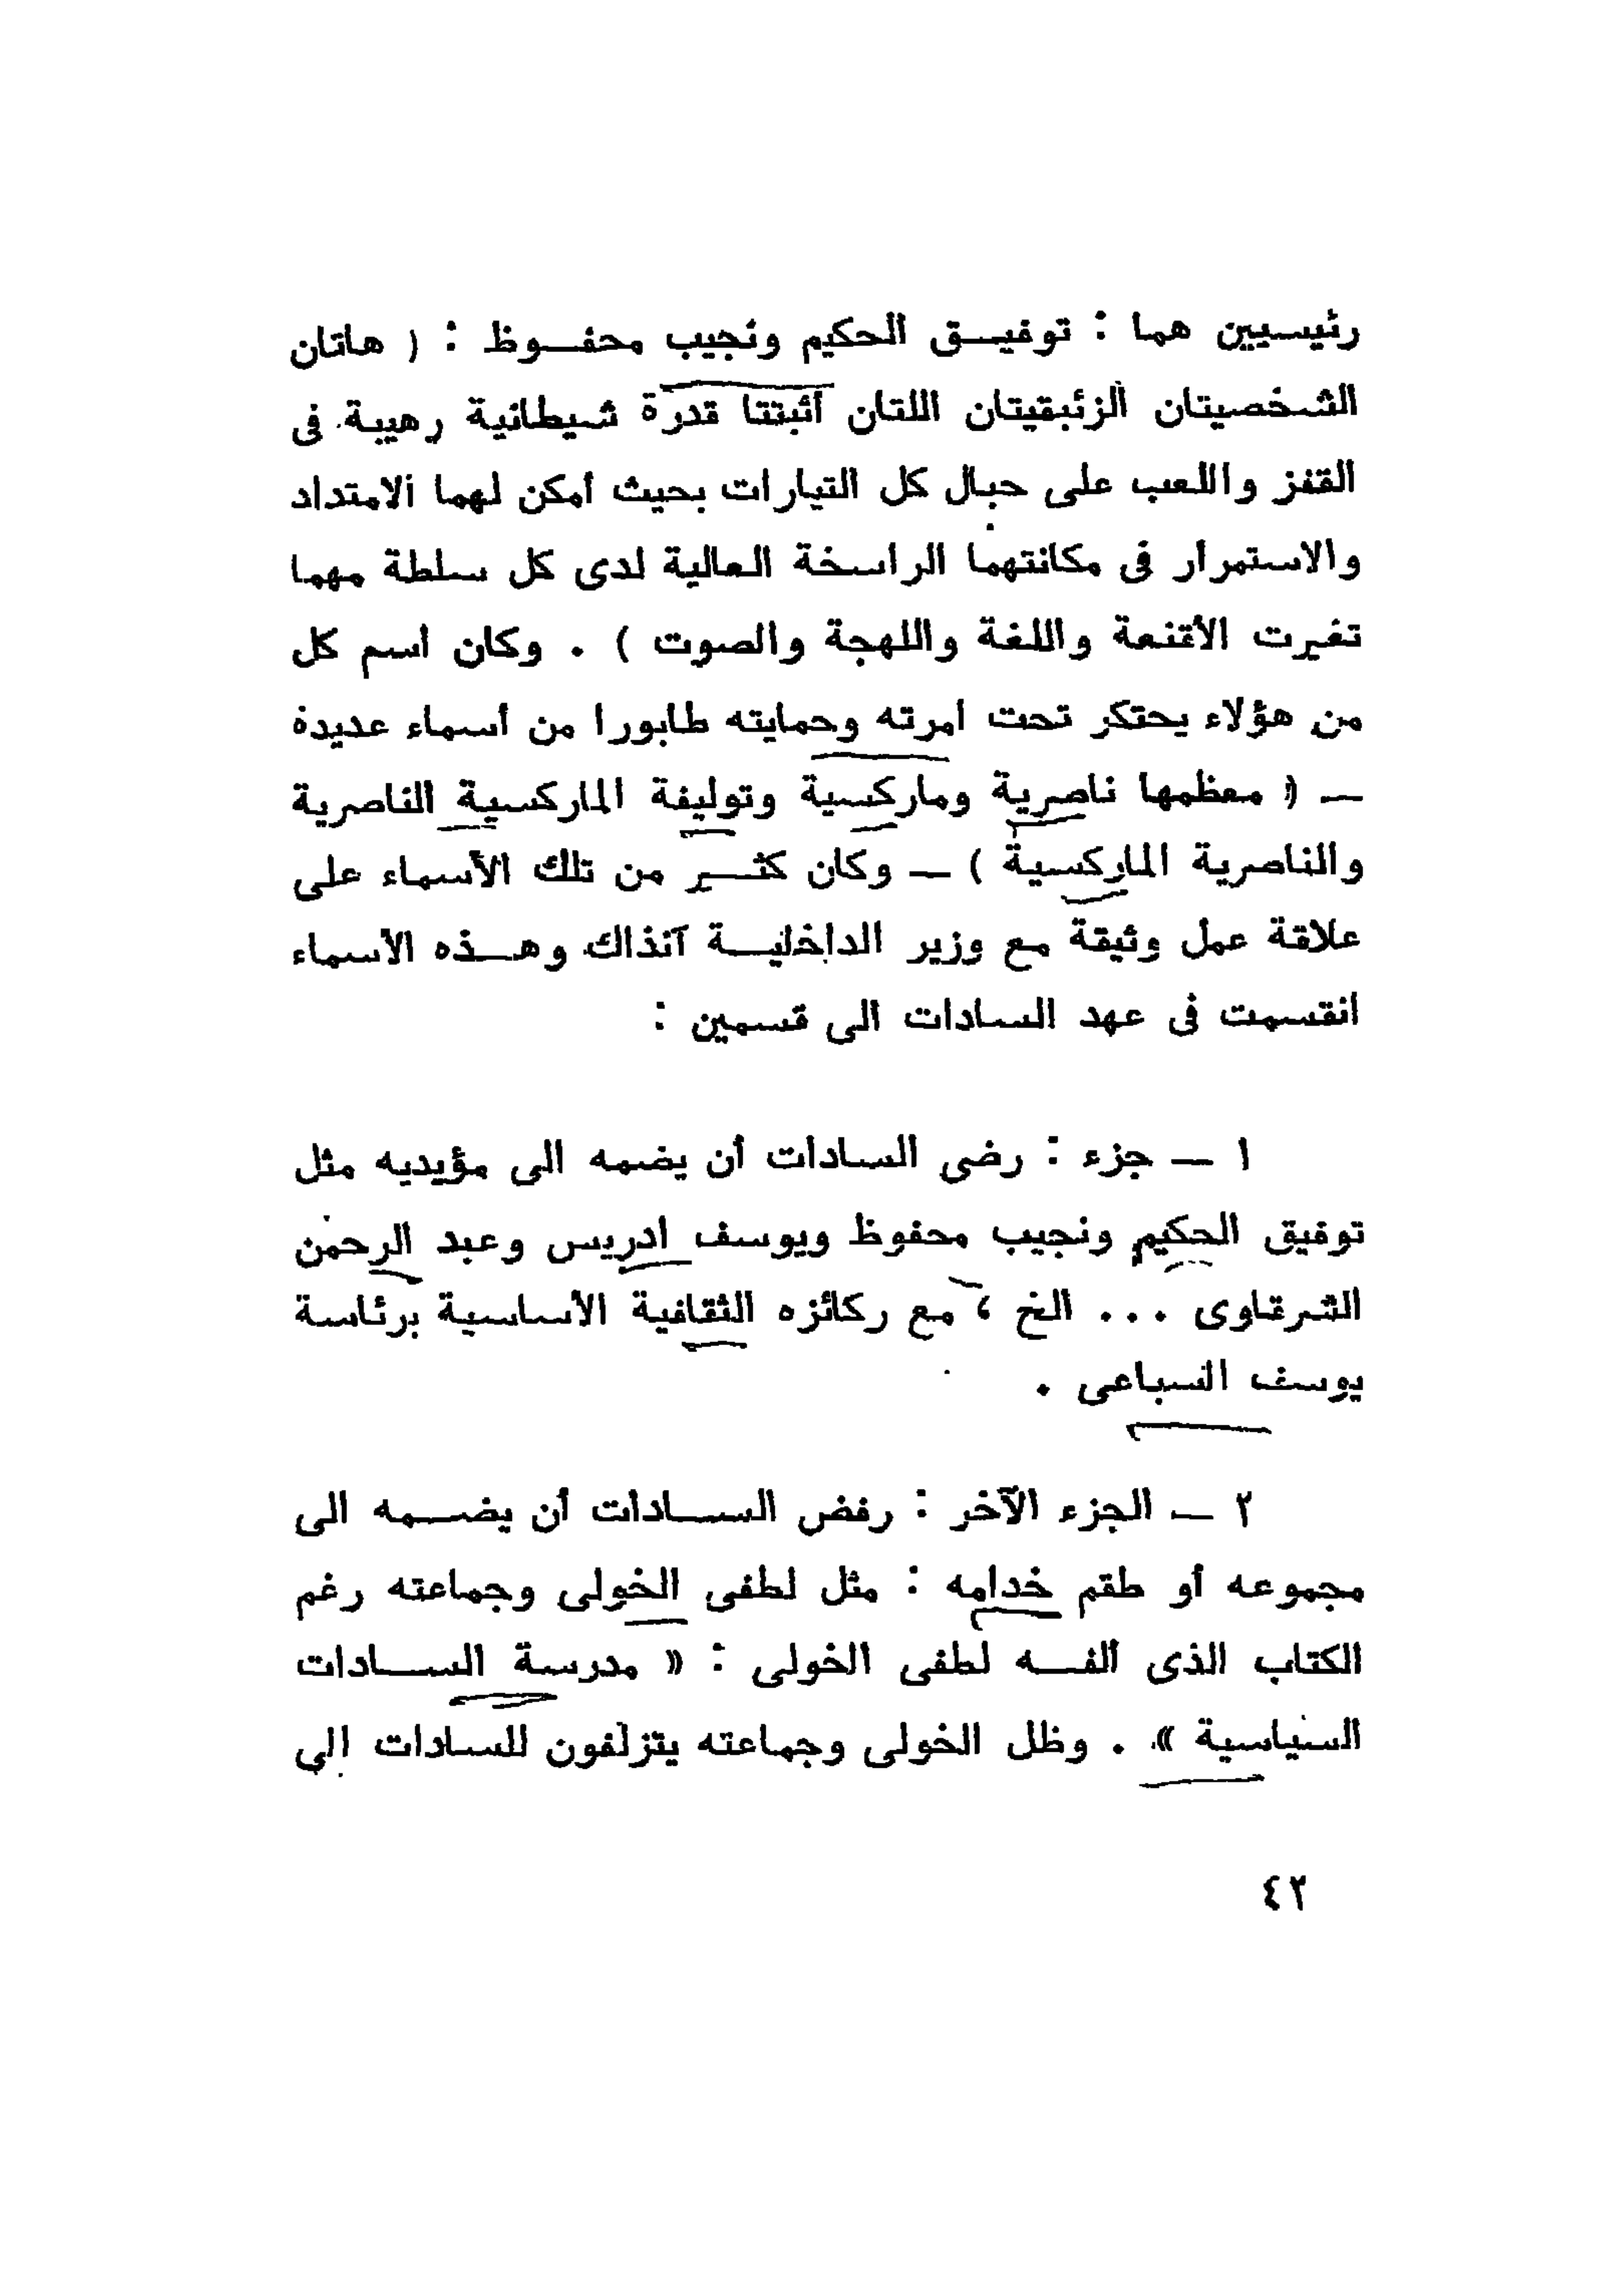 رئيسيين هما : توفيق الحكيم ونجيب محفوظ : ( هاتان
الشخصيتان الزئبقيتان اللتان أثبتتا قدرة شيطانية رهيبة فى
القفز واللعب على حبال كل التيارات بحيث أمكن لهما الامتداد
والاستمرار فى مكانتهما الراسخة العالية لدى كل سلطة مهما
تغيرت الأقنعة واللغة واللهجة والصوت ) . وكان اسم كل
من هؤلاء يحتكر تحت امرته وحمايته طابورا من أسماء عديدة
— ( معظمها ناصرية وماركسية وتوليفة الماركسية الناصرية
والناصرية الماركسية ) — وكان كثير من تلك الأسماء على
علاقة عمل وثيقة مع وزير الداخلية آنذاك وهذه الأسماء
انقسمت فى عهد السادات الى قسمين :
١ — جزء : رضى السادات أن يضمه الى مؤيديه مثل
توفيق الحكيم ونجيب محفوظ ويوسف ادريس وعبد الرحمن
الشرقاوى ... الخ ، مع ركائزه الثقافية الأساسية برئاسة
يوسف السباعى .
٢ — الجزء الآخر : رفض السادات أن يضمه الى
مجموعه أو طقم خدامه : مثل لطفى الخولى وجماعته رغم
الكتاب الذى ألفه لطفى الخولى : « مدرسة السادات
السياسية » . وظل الخولى وجماعته يتزلفون للسادات الى
٤٢